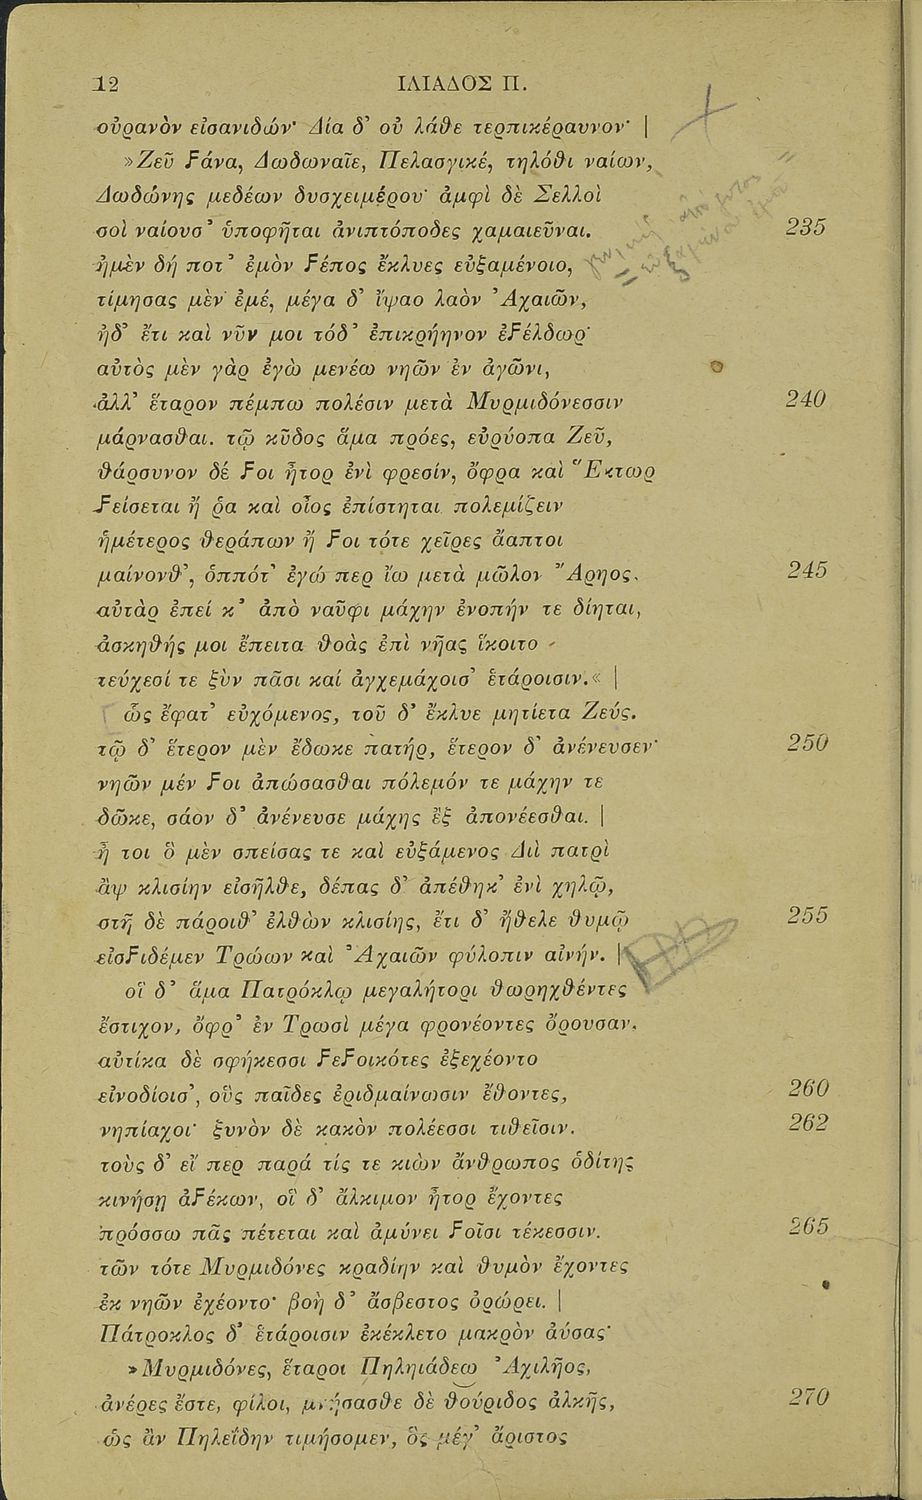 12 ΙΛΙΑΔΟΣ Π.
οὐρανὸν εἰσανιδών· Δία δ’ οὐ λάθε τερπικέραυνον· |
»Ζεῦ ϝάνα, Δωδωναῖε, Πελασγικέ, τηλόθι ναίων,
Δωδώνης μεδέων δυσχειμέρου· ἀμφὶ δὲ Σελλοὶ
σοὶ ναίουσ’ ὑποφῆται ἀνιπτόποδες χαμαιεῦναι. 235
ἠμὲν δή ποτ’ ἐμὸν ϝέπος ἔκλυες εὐξαμένοιο,
τίμησας μὲν ἐμέ, μέγα δ’ ἴψαο λαὸν Ἀχαιῶν,
ἠδ’ ἔτι καὶ νῦν μοι τόδ’ ἐπικρήηνον ἐϝέλδωρ·
αὐτὸς μὲν γὰρ ἐγὼ μενέω νηῶν ἐν ἀγῶνι,
ἀλλ’ ἕταρον πέμπω πολέσιν μετὰ Μυρμιδόνεσσιν 240
μάρνασθαι. τῷ κῦδος ἅμα πρόες, εὐρύοπα Ζεῦ,
θάρσυνον δέ ϝοι ἦτορ ἐνὶ φρεσίν, ὄφρα καὶ Ἕκτωρ
ϝείσεται ἤ ῥα καὶ οἶος ἐπίστηται πολεμίζειν
ἡμέτερος θεράπων ἤ ϝοι τότε χεῖρες ἄαπτοι
μαίνονθ’, ὁππότ’ ἐγώ περ ἴω μετὰ μῶλον Ἄρηος. 245
αὐτὰρ ἐπεί κ’ ἀπὸ ναῦφι μάχην ἐνοπήν τε δίηται,
ἀσκηθής μοι ἔπειτα θοὰς ἐπὶ νῆας ἵκοιτο
τεύχεσί τε ξὺν πᾶσι καί ἀγχεμάχοισ’ ἑτάροισιν.« |
ὣς ἔφατ’ εὐχόμενος, τοῦ δ’ ἔκλυε μητίετα Ζεύς.
τῷ δ’ ἕτερον μὲν ἔδωκε πατήρ, ἕτερον δ’ ἀνένευσεν· 250
νηῶν μέν ϝοι ἀπώσασθαι πόλεμόν τε μάχην τε
δῶκε, σάον δ’ ἀνένευσε μάχης ἒξ ἀπονέεσθαι. |
ἦ τοι ὃ μὲν σπείσας τε καὶ εὐξάμενος Διὶ πατρὶ
ἂψ κλισίην εἰσῆλθε, δέπας δ’ ἀπέθηκ’ ἐνὶ χηλῷ,
στῆ δὲ πάροιθ’ ἐλθὼν κλισίης, ἔτι δ’ ἤθελε θυμῷ 255
εἰσϝιδέμεν Τρώων καὶ Ἀχαιῶν φύλοπιν αἰνήν. |
οἳ δ’ ἅμα Πατρόκλῳ μεγαλήτορι θωρηχθέντες
ἔστιχον, ὄφρ’ ἐν Τρωσὶ μέγα φρονέοντες ὄρουσαν.
αὐτίκα δὲ σφήκεσσι ϝεϝοικότες ἐξεχέοντο
εἰνοδίοισ’, οὓς παῖδες ἐριδμαίνωσιν ἔθοντες, 260
νηπίαχοι· ξυνὸν δὲ κακὸν πολέεσσι τιθεῖσιν. 262
τοὺς δ’ εἴ περ παρά τίς τε κιὼν ἄνθρωπος ὁδίτης
κινήσῃ ἀϝέκων, οἳ δ’ ἄλκιμον ἦτορ ἔχοντες
πρόσσω πᾶς πέτεται καὶ ἀμύνει ϝοῖσι τέκεσσιν. 265
τῶν τότε Μυρμιδόνες κραδίην καὶ θυμὸν ἔχοντες
ἐκ νηῶν ἐχέοντο· βοὴ δ’ ἄσβεστος ὀρώρει. |
Πάτροκλος δ’ ἑτάροισιν ἐκέκλετο μακρὸν ἀύσας·
»Μυρμιδόνες, ἕταροι Πηληιάδεω Ἀχιλῆος,
ἀνέρες ἔστε, φίλοι, μνήσασθε δὲ θούριδος ἀλκῆς, 270
ὡς ἂν Πηλεΐδην τιμήσομεν, ὃς μέγ’ ἄριστος